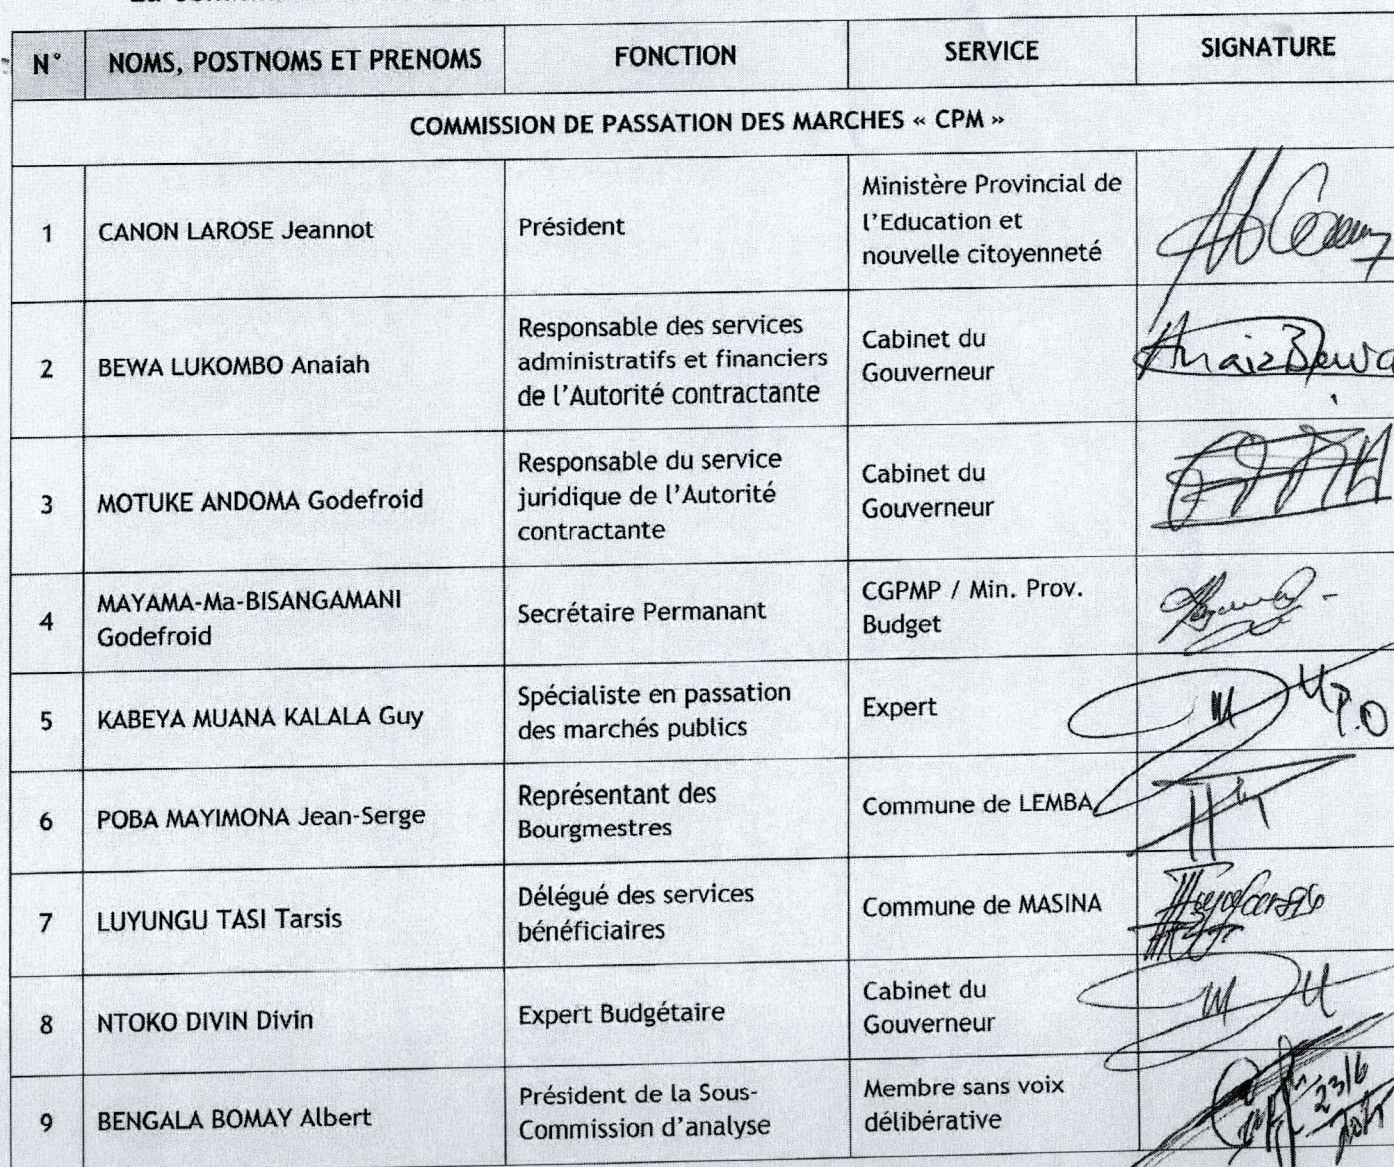 N° NOMS, POSTNOMS ET PRENOMS FONCTION SERVICE SIGNATURE
COMMISSION DE PASSATION DES MARCHES « CPM »
1 CANON LAROSE Jeannot Président Ministère Provincial de
l'Education et
nouvelle citoyenneté
2 BEWA LUKOMBO Anaiah Responsable des services
administratifs et financiers
de l'Autorité contractante
Cabinet du
Gouverneur
Anaiz Bewa
3 MOTUKE ANDOMA Godefroid Responsable du service
juridique de l'Autorité
contractante
Cabinet du
Gouverneur
4 MAYAMA-Ma-BISANGAMANI
Godefroid
Secrétaire Permanant
CGPMP / Min. Prov.
Budget
5 KABEYA MUANA KALALA Guy Spécialiste en passation
des marchés publics
Expert
P.O
6 POBA MAYIMONA Jean-Serge Représentant des
Bourgmestres
Commune de LEMBA
7 LUYUNGU TASI Tarsis Délégué des services
bénéficiaires
Commune de MASINA
8 NTOKO DIVIN Divin Expert Budgétaire Cabinet du
Gouverneur
9 BENGALA BOMAY Albert Président de la Sous-
Commission d'analyse
Membre sans voix
délibérative
23/6